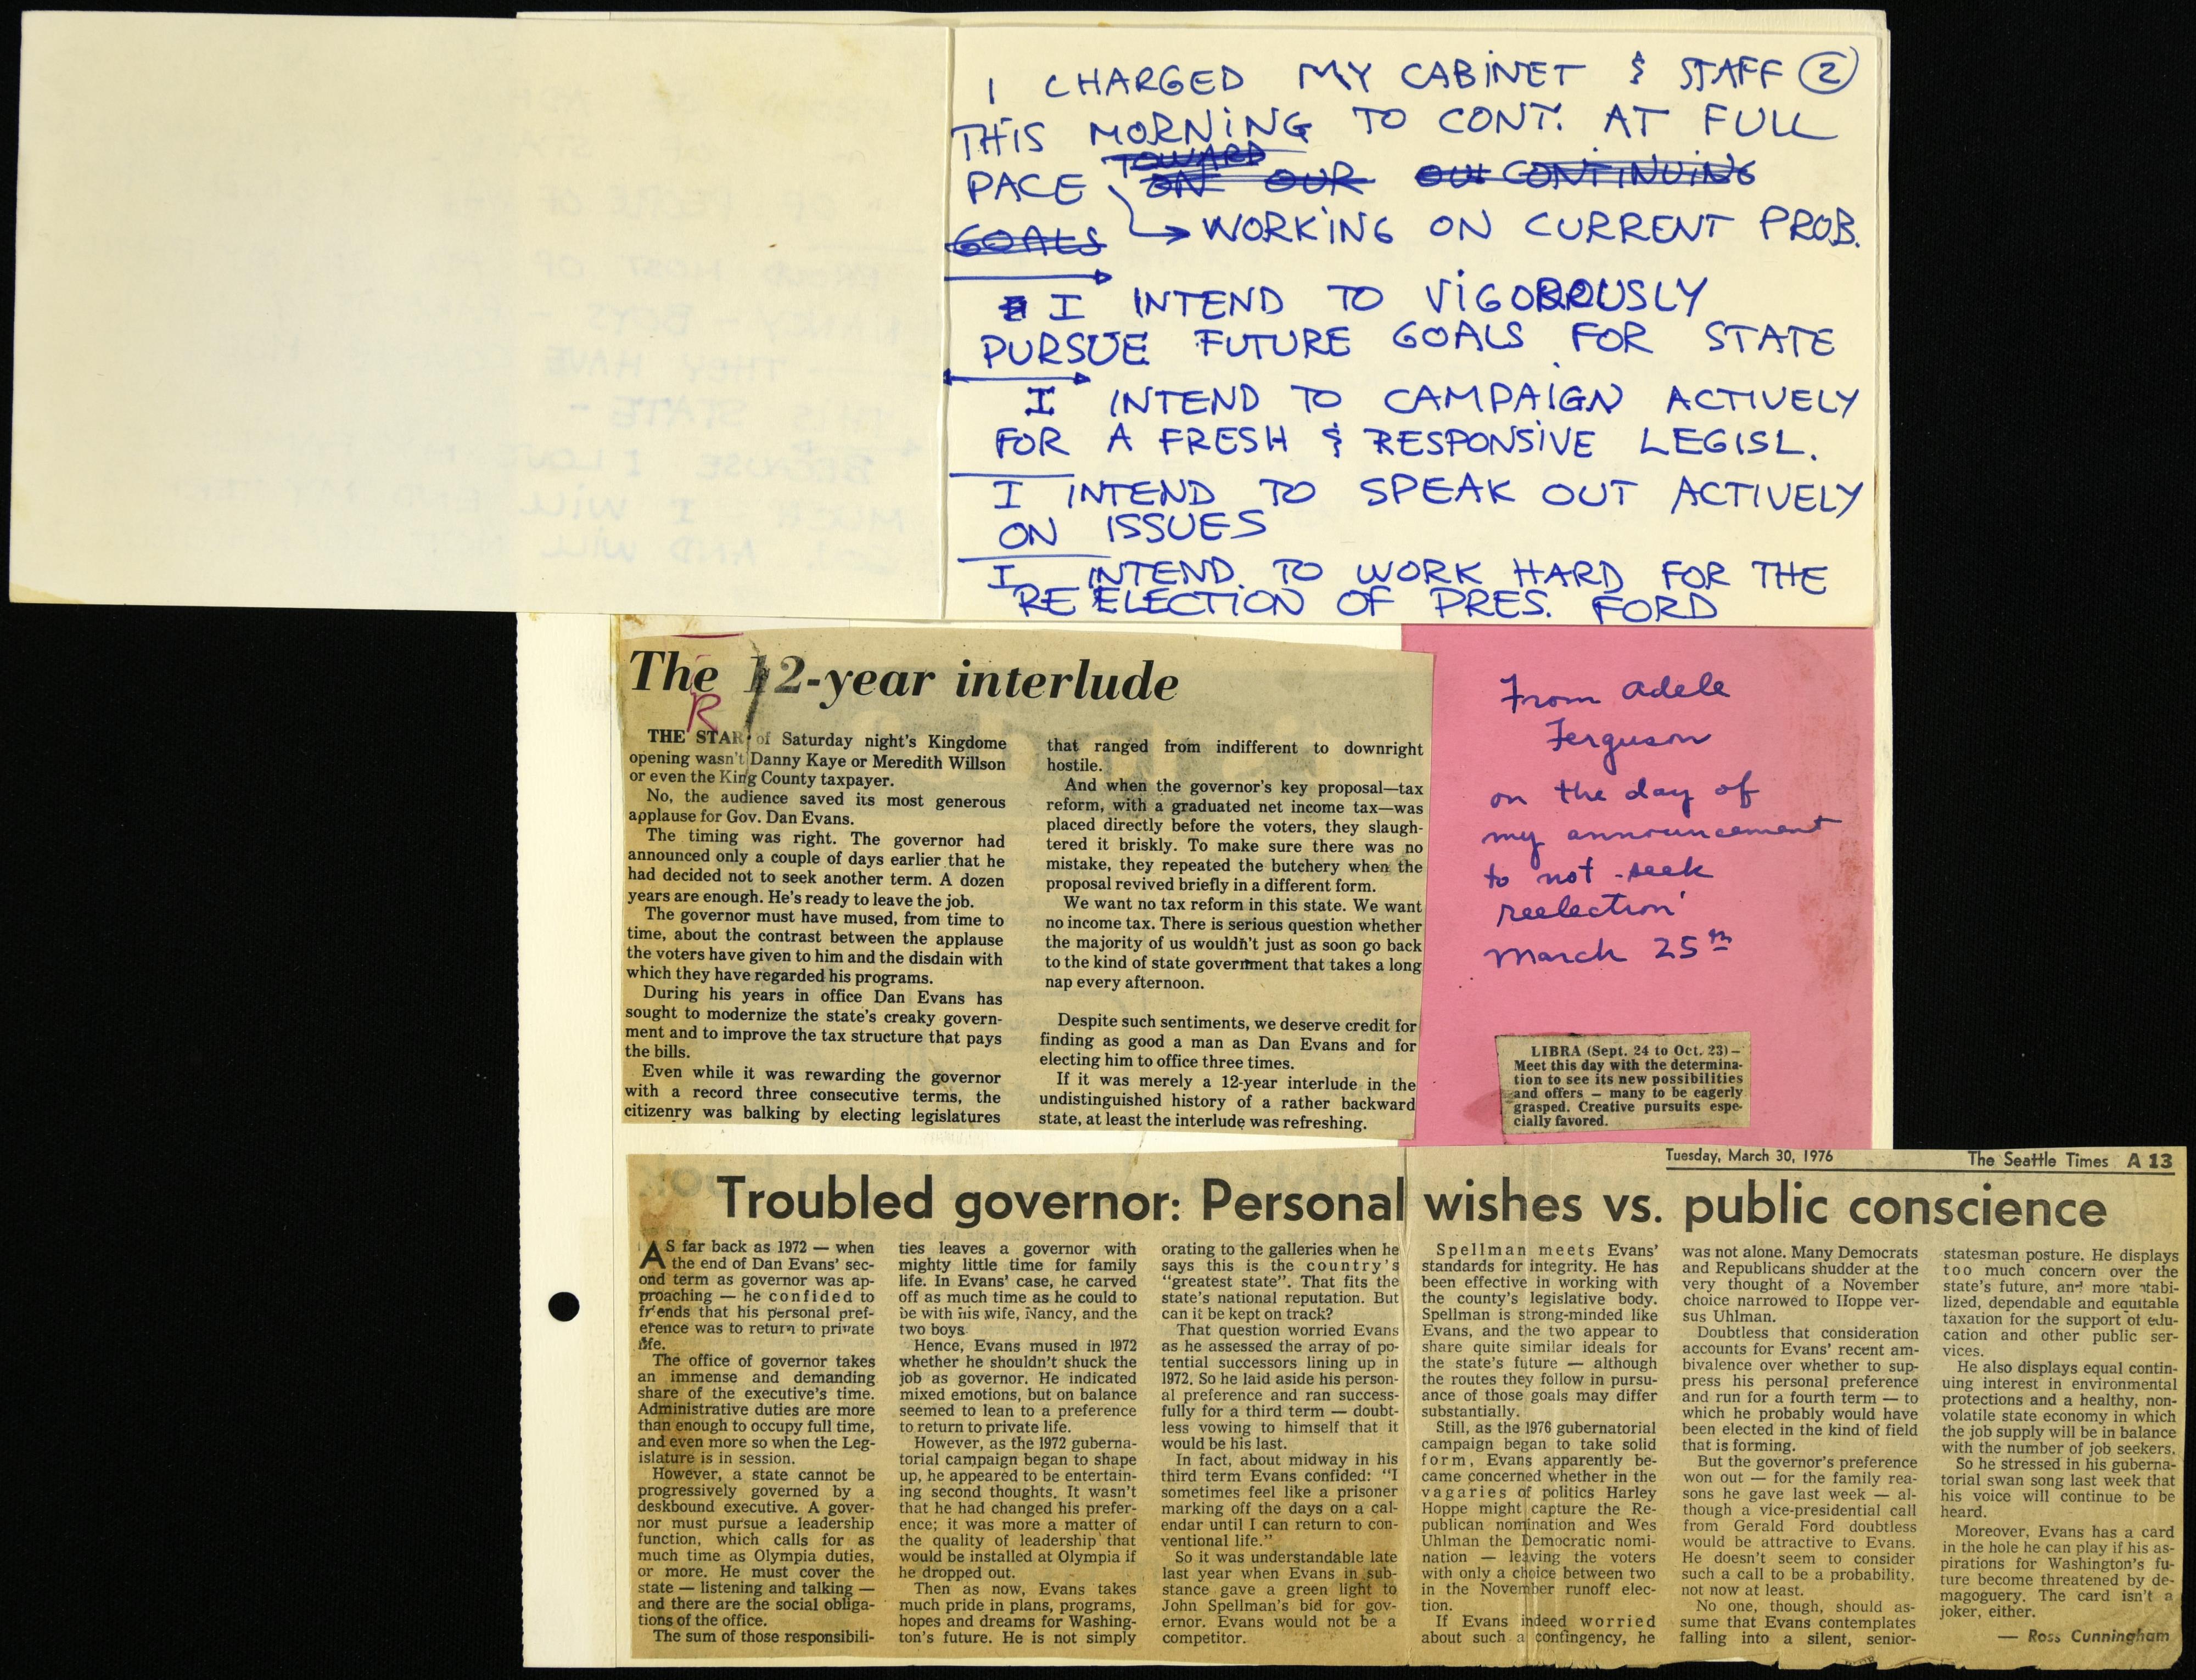 I CHARGED MY CABINET & STAFF ②
THIS MORNING TO CONT. AT FULL
TOWARD
PACE ON OUR OUT CONTINUING
GOALS → WORKING ON CURRENT PROB.
I INTEND TO VIGOROUSLY
PURSUE FUTURE GOALS FOR STATE
I INTEND TO CAMPAIGN ACTIVELY
FOR A FRESH & RESPONSIVE LEGISL.
I INTEND TO SPEAK OUT ACTIVELY
ON ISSUES
I INTEND TO WORK HARD FOR THE
RE ELECTION OF PRES. FORD
The 12-year interlude
R
THE STAR of Saturday night's Kingdome
opening wasn't Danny Kaye or Meredith Willson
or even the King County taxpayer.
No, the audience saved its most generous
applause for Gov. Dan Evans.
The timing was right. The governor had
announced only a couple of days earlier that he
had decided not to seek another term. A dozen
years are enough. He's ready to leave the job.
The governor must have mused, from time to
time, about the contrast between the applause
the voters have given to him and the disdain with
which they have regarded his programs.
During his years in office Dan Evans has
sought to modernize the state's creaky govern-
ment and to improve the tax structure that pays
the bills.
Even while it was rewarding the governor
with a record three consecutive terms, the
citizenry was balking by electing legislatures
that ranged from indifferent to downright
hostile.
And when the governor's key proposal—tax
reform, with a graduated net income tax—was
placed directly before the voters, they slaugh-
tered it briskly. To make sure there was no
mistake, they repeated the butchery when the
proposal revived briefly in a different form.
We want no tax reform in this state. We want
no income tax. There is serious question whether
the majority of us wouldn't just as soon go back
to the kind of state government that takes a long
nap every afternoon.
Despite such sentiments, we deserve credit for
finding as good a man as Dan Evans and for
electing him to office three times.
If it was merely a 12-year interlude in the
undistinguished history of a rather backward
state, at least the interlude was refreshing.
From Adele
Ferguson
on the day of
my announcement
to not seek
reelection
March 25th
LIBRA (Sept. 24 to Oct. 23) –
Meet this day with the determina-
tion to see its new possibilities
and offers — many to be eagerly
grasped. Creative pursuits espe-
cially favored.
Tuesday, March 30, 1976 The Seattle Times A 13
Troubled governor: Personal wishes vs. public conscience
AS far back as 1972 — when
the end of Dan Evans' sec-
ond term as governor was ap-
proaching — he confided to
friends that his personal pref-
erence was to return to private
life.
The office of governor takes
an immense and demanding
share of the executive's time.
Administrative duties are more
than enough to occupy full time,
and even more so when the Leg-
islature is in session.
However, a state cannot be
progressively governed by a
deskbound executive. A gover-
nor must pursue a leadership
function, which calls for as
much time as Olympia duties,
or more. He must cover the
state — listening and talking —
and there are the social obliga-
tions of the office.
The sum of those responsibili-
ties leaves a governor with
mighty little time for family
life. In Evans' case, he carved
off as much time as he could to
be with his wife, Nancy, and the
two boys.
Hence, Evans mused in 1972
whether he shouldn't shuck the
job as governor. He indicated
mixed emotions, but on balance
seemed to lean to a preference
to return to private life.
However, as the 1972 guberna-
torial campaign began to shape
up, he appeared to be entertain-
ing second thoughts. It wasn't
that he had changed his prefer-
ence; it was more a matter of
the quality of leadership that
would be installed at Olympia if
he dropped out.
Then as now, Evans takes
much pride in plans, programs,
hopes and dreams for Washing-
ton's future. He is not simply
orating to the galleries when he
says this is the country's
"greatest state". That fits the
state's national reputation. But
can it be kept on track?
That question worried Evans
as he assessed the array of po-
tential successors lining up in
1972. So he laid aside his person-
al preference and ran success-
fully for a third term — doubt-
less vowing to himself that it
would be his last.
In fact, about midway in his
third term Evans confided: "I
sometimes feel like a prisoner
marking off the days on a cal-
endar until I can return to con-
ventional life."
So it was understandable late
last year when Evans in sub-
stance gave a green light to
John Spellman's bid for gov-
ernor. Evans would not be a
competitor.
Spellman meets Evans'
standards for integrity. He has
been effective in working with
the county's legislative body.
Spellman is strong-minded like
Evans, and the two appear to
share quite similar ideals for
the state's future — although
the routes they follow in pursu-
ance of those goals may differ
substantially.
Still, as the 1976 gubernatorial
campaign began to take solid
form, Evans apparently be-
came concerned whether in the
vagaries of politics Harley
Hoppe might capture the Re-
publican nomination and Wes
Uhlman the Democratic nomi-
nation — leaving the voters
with only a choice between two
in the November runoff elec-
tion.
If Evans indeed worried
about such a contingency, he
was not alone. Many Democrats
and Republicans shudder at the
very thought of a November
choice narrowed to Hoppe ver-
sus Uhlman.
Doubtless that consideration
accounts for Evans' recent am-
bivalence over whether to sup-
press his personal preference
and run for a fourth term — to
which he probably would have
been elected in the kind of field
that is forming.
But the governor's preference
won out — for the family rea-
sons he gave last week — al-
though a vice-presidential call
from Gerald Ford doubtless
would be attractive to Evans.
He doesn't seem to consider
such a call to be a probability,
not now at least.
No one, though, should as-
sume that Evans contemplates
falling into a silent, senior-
statesman posture. He displays
too much concern over the
state's future, and more stabi-
lized, dependable and equitable
taxation for the support of edu-
cation and other public ser-
vices.
He also displays equal contin-
uing interest in environmental
protections and a healthy, non-
volatile state economy in which
the job supply will be in balance
with the number of job seekers.
So he stressed in his guberna-
torial swan song last week that
his voice will continue to be
heard.
Moreover, Evans has a card
in the hole he can play if his as-
pirations for Washington's fu-
ture become threatened by de-
magoguery. The card isn't a
joker, either.
— Ross Cunningham